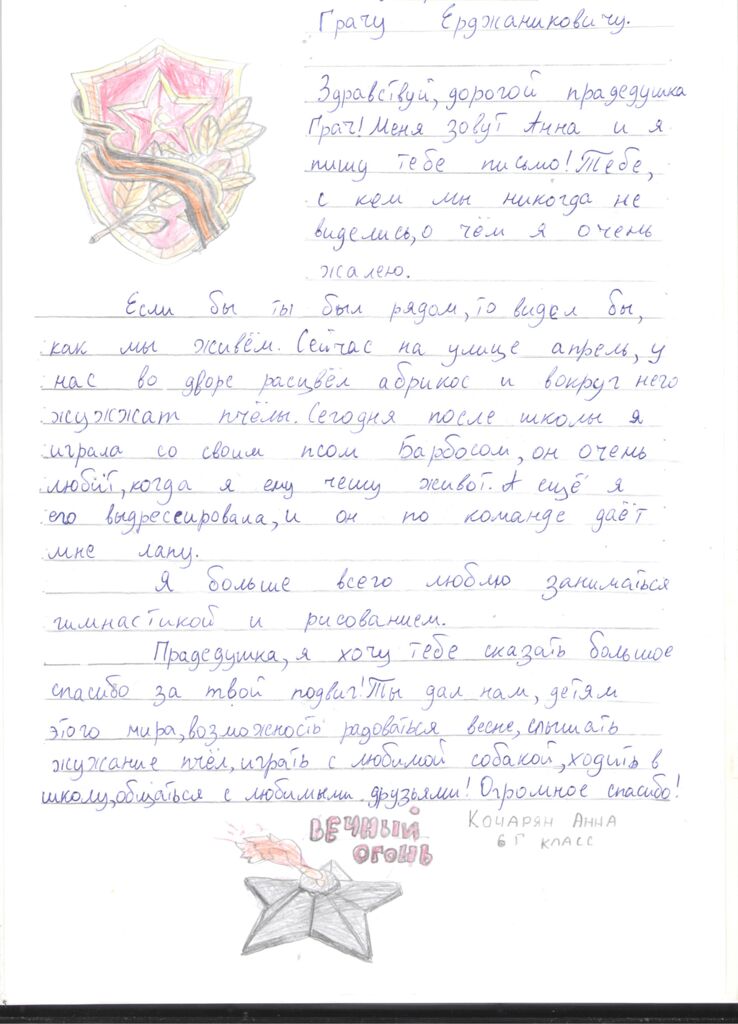 Грачу Ерджаниковичу.
Здравствуй, дорогой прадедушка
Грач! Меня зовут Анна и я
пишу тебе письмо! Тебе,
с кем мы никогда не
виделись, о чём я очень
жалею.
Если бы ты был рядом, то видел бы,
как мы живём. Сейчас на улице апрель, у
нас во дворе расцвёл абрикос и вокруг него
жужжат пчёлы. Сегодня после школы я
играла со своим псом Барбосом, он очень
любит, когда я ему чешу живот. А ещё я
его выдрессировала, и он по команде даёт
мне лапу.
Я больше всего люблю заниматься
гимнастикой и рисованием.
Прадедушка, я хочу тебе сказать большое
спасибо за твой подвиг! Ты дал нам, детям
этого мира, возможность радоваться весне, слышать
жужание пчёл, играть с любимой собакой, ходить в
школу, общаться с любимыми друзьями! Огромное спасибо!
ВЕЧНЫЙ
ОГОНЬ
Кочарян Анна
6 Г класс